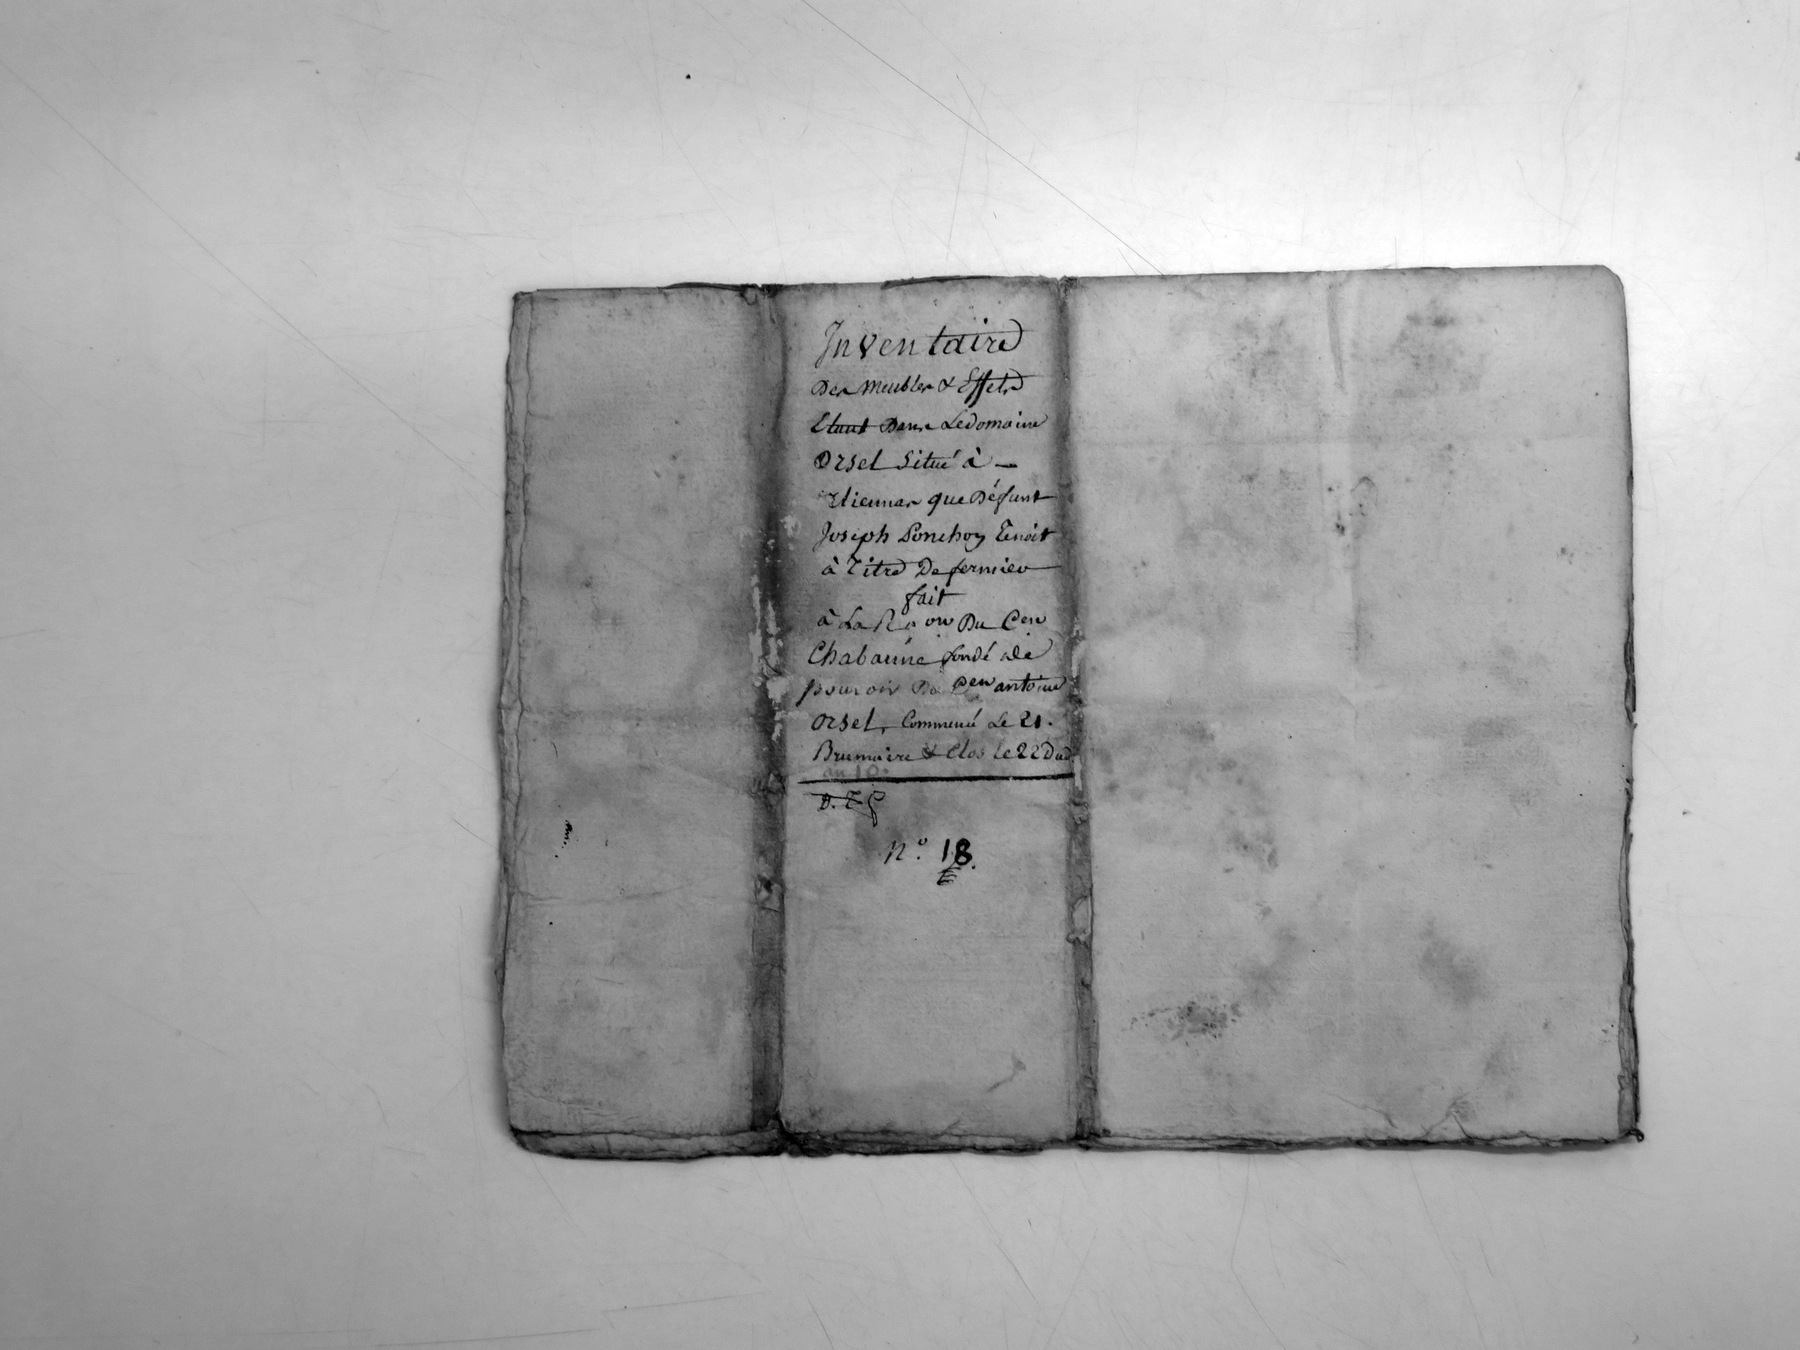 Inventaire
Des Meubles & Effets
Etant Dans Le domaine
Orsel Situé à —
que Défunt
Joseph Ponchon Tenoit
à Titre De fermier
fait
à La R on Du Cen
Chabanne fondé de
pouvoir Du Cen antoine
Orsel, Commencé Le 21.
Brumaire & Clos le 22 Dud
an 10.
N.º 18.